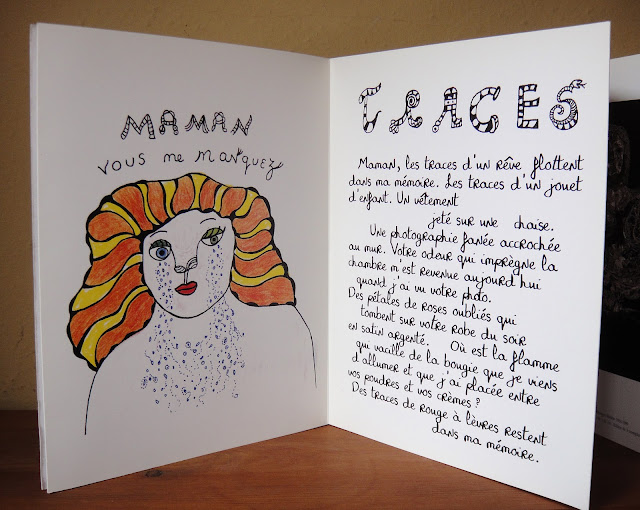 MAMAN
vous me manquez
TRACES
Maman, les traces d'un rêve flottent
dans ma mémoire. Les traces d'un jouet
d'enfant. Un vêtement
jeté sur une chaise.
Une photographie fanée accrochée
au mur. Votre odeur qui imprègne la
chambre m'est revenue aujourd'hui
quand j'ai vu votre photo.
Des pétales de roses oubliés qui
tombent sur votre robe du soir
en satin argenté. Où est la flamme
qui vacille de la bougie que je viens
d'allumer et que j'ai placée entre
vos poudres et vos crèmes?
Des traces de rouge à lèvres restent
dans ma mémoire.